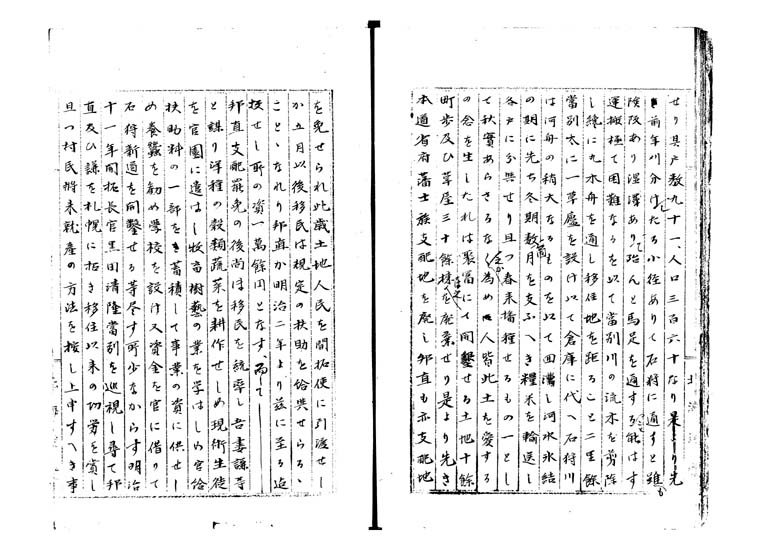 せり其戸数九十一、人口三百六十なり是より先
前年刈分けたる小径ありて石狩に通すと雖も
険阪あり湿澤ありて殆んと馬足を通する能はす
運搬極て困難なるを以て當別川の流木を剪除
し纔に丸木舟を通し移住地を距ること二里餘
當別太に一草廬を設け以て倉庫に代へ石狩川
は河舟の稍大なるものを以て回漕し河水氷結
の期に先ち冬期数月を支ふへき糧米を輸送し
各戸に分與せり且つ春来播種せるもの一とし
て秋實あらさるなく為め人皆此土を愛する
の念を生したれは聚富にて開鑿せる土地十餘
町歩及ひ草屋三十餘棟を廃棄せり是より先き
本道省府藩士族支配地を廃し邦直も亦支配地
を免せられ此歳土地人民を開拓使に引渡せし
か五月以後移民は規定の扶助を給與せらるゝ
ことゝなれり邦直か明治二年より茲に至る迄
投せし所の資一萬餘円となす、而して
邦直支配罷免の後尚ほ移民を統率し吾妻謙等
と謀り洋種の穀類蔬菜を耕作せしめ現術生徒
を官園に遣はし牧畜樹藝の業を学はしめ官給
扶助料の一部を蓄積して事業の資に供せし
め養蚕を勧め学校を設け又資金を官に借りて
石狩新道を開鑿せる等尽す所少なからす明治
十一年開拓長官黒田清隆當別を巡視し尋て邦
直及ひ謙を札幌に招き移住以来の功労を賞し
且つ村民将来就産の方法を按し上申すへき事